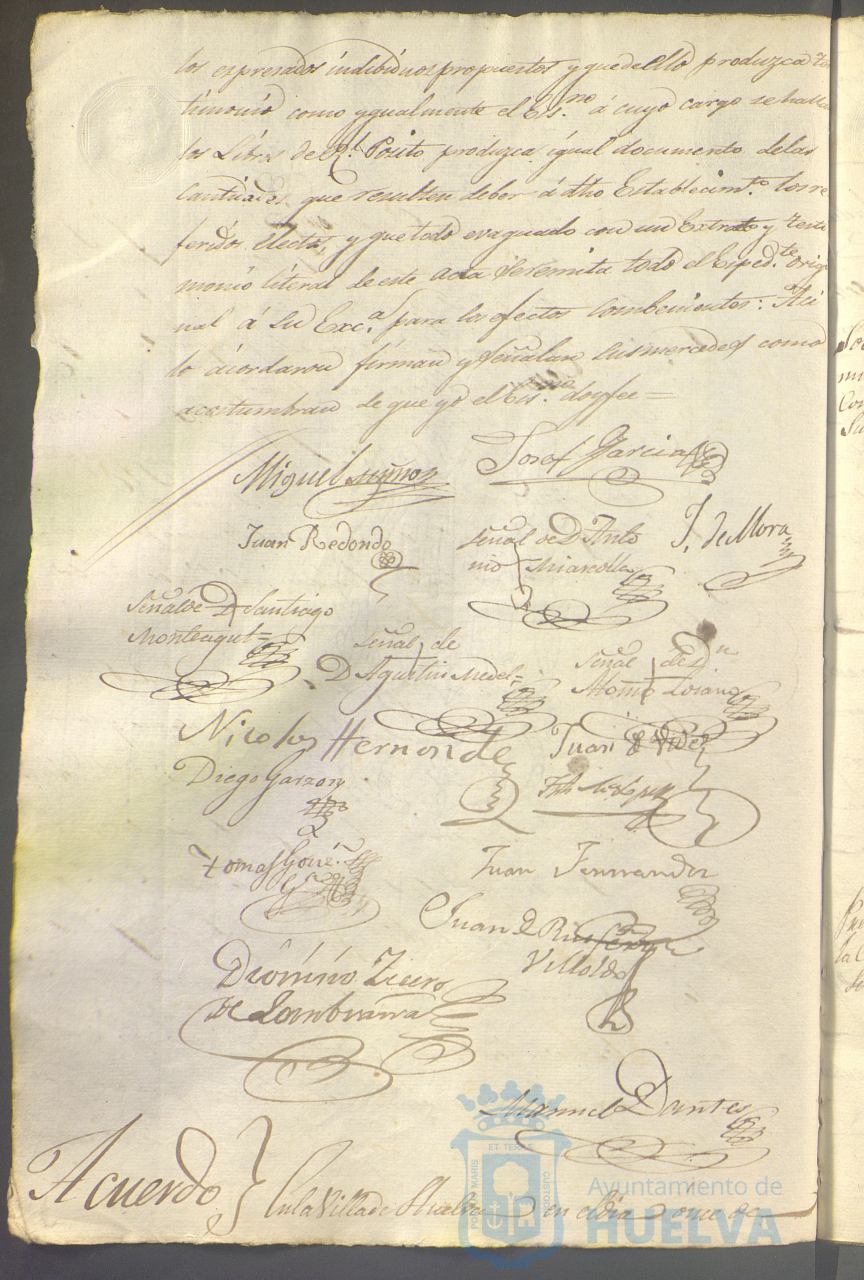 los espresados indibiduos propuestos y que de ello produzca tes
timonio como ygualmente el Es.no á cuyo cargo se hallan
los Libros de R.l Posito produzca igual documento de las
Cantidades que resulten deber á dho Establecim.to los re
feridos electos, y que todo evaquado con un Extracto y testi
monio literal de este acta se remita todo el Exped.te orig
inal á Su Exc.a para los efectos combenientes: Asi
lo acordaron firman y señalan sus mercedes como
acostumbran de que yo el Es.no doy fee =
Miguel
Josef Garcia
Juan Redondo
Señal de D. Anto
nio Miarcolla
J. de Mora
Señal de D Santiago
Monteagut=
Señal de
D Agustin Medel=
Señal de D.n
Alonso Losano
Nicolas Hernonde
Juan de Videl
Diego Garzon
Tomas
Juan Fernandez
Juan de
Villalda
Dionisio
de Lambiarra
Manuel Dantes
Acuerdo
En la Villa de Huelva en el dia once de
PORTUS MARIS
ET TERRE
CUSTODIA
Ayuntamiento de
HUELVA